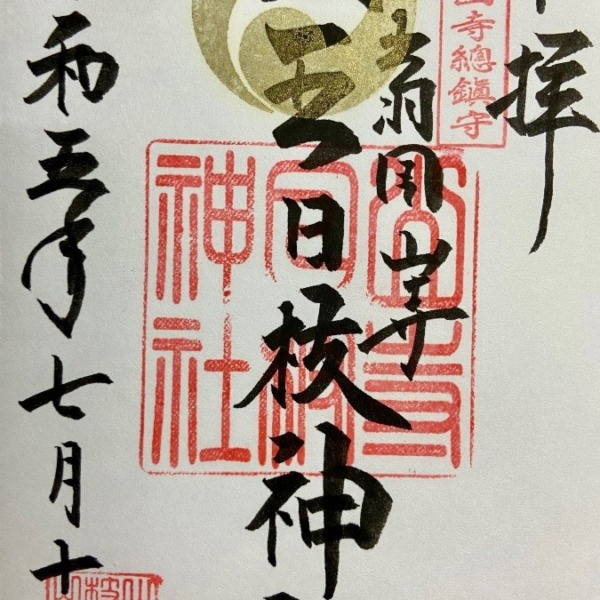 拝
寺總鎮守
翁
山寺
日枝神
山寺
日枝
神社
和五年七月十